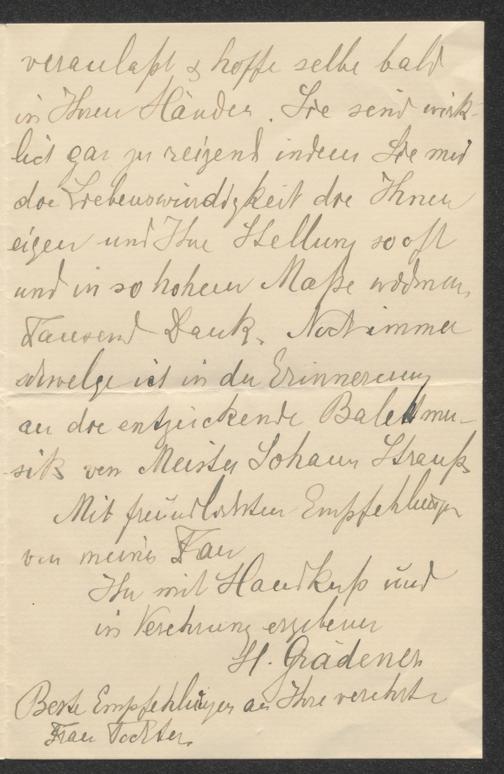 veranlaßt & hoffe selbe bald
in Ihren Händen. Sie sind wirk-
lich gar zu reizend indem Sie mir
die Liebenswürdigkeit die Ihnen
eigen und Ihre Stellung so oft
und in so hohem Maße widmen,
Tausend Dank. Noch immer
schwelge ich in der Erinnerung
an die entzückende Balettmu-
sik von Meister Johann Strauß
Mit freundlichsten Empfehlungen
von meiner Frau
Ihr mit Handkuß und
in Verehrung ergebener
H. Grädener
Beste Empfehlungen an Ihre verehrte
Frau Tochter.